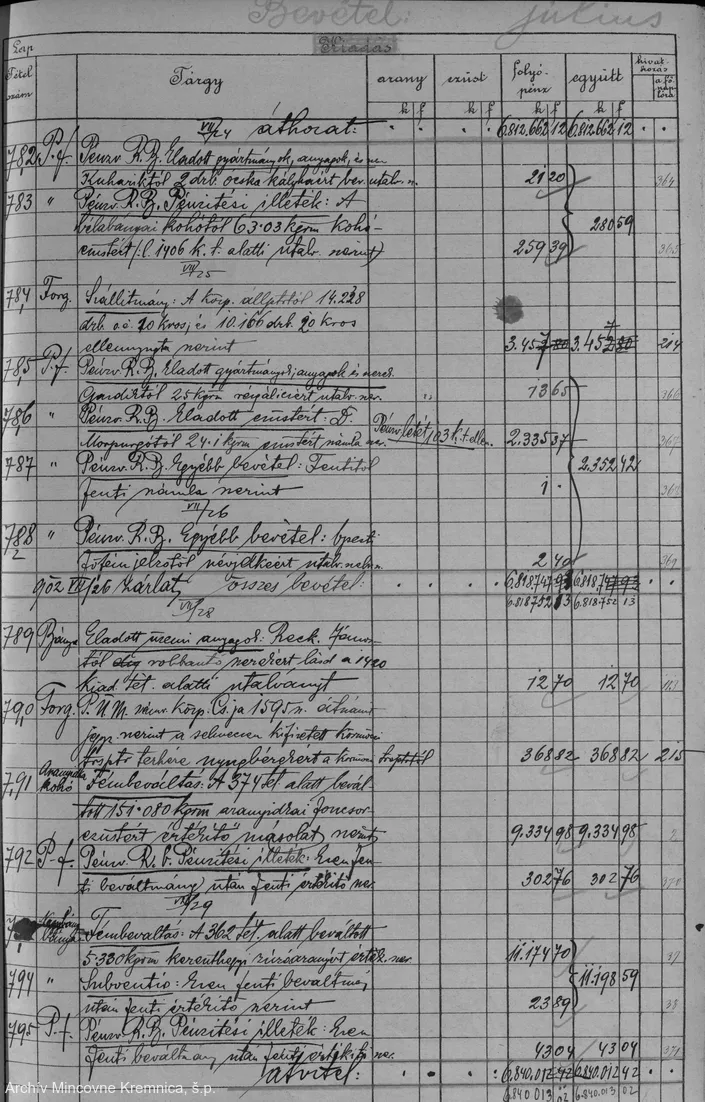 Bevétel: július
Kiadás
Tétel szám Tárgy arany ezüst folyó-pénz együtt hivat-kozás a főnaplóra
k f k f k f k f
VII/24 áthozat: 6.812.662 12 6.812.662 12
782 P.f. Pénzv. R. B. Eladott gyártmányok, anyagok, és
Kuhariktól 2 drb. ócska kályháért bev. utalv. 21 20 364
783 " Pénzv. R. B. Pénzitési illeték: A
bélabányai kohótól 63.03 kgrm kohó- 280 59
ezüstért /:l. 1406 k. t. alatti utalv. szerint) 259 39 365
VII/25
784 Forg. Szállitmány: A körp. állptól 14.228
drb. o. é. 20 kros, és 10.166 drb. 20 kros
ellennyugta szerint 3.457 3.457 214
785 P.f. Pénzv. R. B. Eladott gyártmányok, anyagok és
25 kgrm utalv. 13 65 366
786 " Pénzv. R. B. Eladott ezüstért: D.
Morpurgótól 24.1 kgrm ezüstért számla Pénzv. letét 103 k. t. ellen. 2.335 37 367
787 " Pénzv. R. B. Egyébb bevétel: Fentitől 2.352 42
fenti számla szerint 1 . 368
VII/26
788 " Pénzv. R. B. Egyébb bevétel: bpesti
fémjelzőtől névjelkéért utalv. 2 40 369
902 VII/26 Zárlat, összes bevétel: 6.818.747 93 6.818.747 93
6.818.752 13 6.818.752 13
VII/28
789 Bánya Eladott üzemi anyagok: Reck. János-
tól robbantó szerekért lásd a 1420
kiad. tét. alatti utalványt 12 70 12 70 113
790 Forg. P. Ü. M. körp. Cs. ja 1595 n. átszámi
jegyz. szerint a selmeczen kifizetett körmöczi
főrptr terhére nyugbérekért a körmöczi 368 82 368 82 215
791 Aranyidka kohó Fémbeváltás: A 374 tét. alatt bevál-
tott 151.080 kgrm aranyidkai foncsor-
ezüstért értékítő másolat szerint 9.334 98 9.334 98 2
792 P-f. Pénzv. R. B. Pénzitési illeték: Ezen fen-
ti beváltmány után fenti értékítő sz. 302 76 302 76 370
VII/29
Fémbeváltás: A 362 tét. alatt beváltott
5.330 kgrm kereszthegyi zúzaranyért érték. sz. 11.174 70 37
794 " Subventio: Ezen fenti beváltmány 11.198 59
után fenti értékítő szerint 23 89 38
795 P.f. Pénzv. R. B. Pénzitési illeték: Ezen
fenti beváltmány után fenti értékítő sz. 43 04 43 04 371
átvitel: 6.840.012 42 6.840.012 42
6.840.013 02 6.840.013 02
Archív Mincovne Kremnica, š.p.